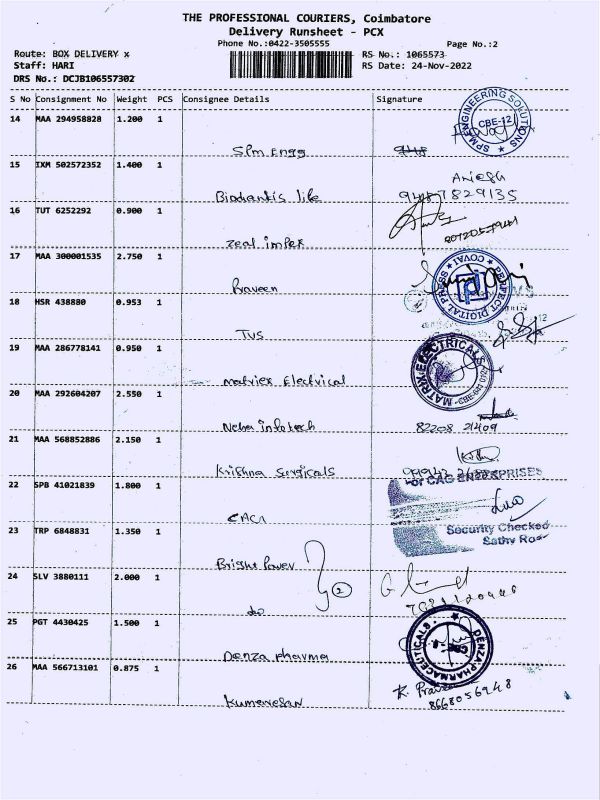 THE PROFESSIONAL COURIERS, Coimbatore
Delivery Runsheet - PCX
Phone No.:0422-3505555 Page No.:2
Route: BOX DELIVERY x RS No.: 1065573
Staff: HARI RS Date: 24-Nov-2022
DRS No.: DCJB106557302
S No Consignment No Weight PCS Consignee Details Signature
14 MAA 294958828 1.200 1
SPM ENGINEERING SOLUTIONS CBE-12
SPM Engg
15 IXM 502572352 1.400 1
Biodantis life 9487829135
16 TUT 6252292 0.900 1
Zeal impex
17 MAA 300001535 2.750 1
Praveen
PERFECT DIGITAL PRESS COVAI
18 HSR 438880 0.953 1
TVS
19 MAA 286778141 0.950 1
MATRIX ELECTRICALS
matrix Electrical
20 MAA 292604207 2.550 1
Neha infotech 82208 21409
21 MAA 568852886 2.150 1
Krishna Surgicals
22 SPB 41021839 1.800 1
For CAG ENTERPRISES
Security Checked
Sathy Roa
23 TRP 6848831 1.350 1
Bright Power
24 SLV 3880111 2.000 1
2
do
25 PGT 4430425 1.500 1
DENZA PHARMACEUTICALS
Denza Pharma
26 MAA 566713101 0.875 1
Kumaresan 8668056948